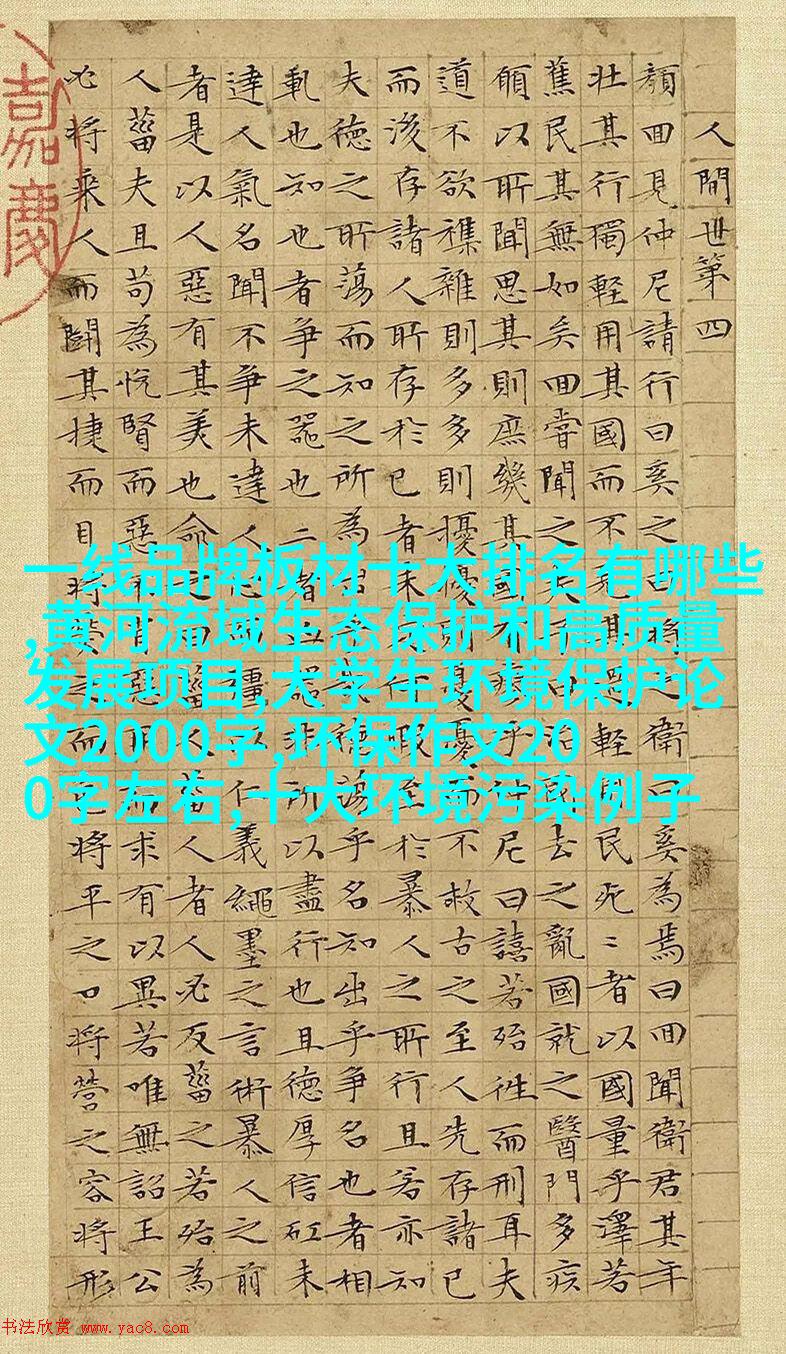 人間世第四
顏回見仲尼請行曰奚之曰將之衛曰奚為焉曰回聞衛君其年
壯其行獨輕用其國而不見其過輕用民死〻者以國量乎澤若
蕉民其無如矣回嘗聞之夫子曰治民去之亂國就之醫門多疾
願以所聞思其則庶幾其國有瘳乎仲尼曰譆若殆往而刑耳夫
道不欲襍雜則多多則擾擾則憂憂而不救古之至人先存諸己
而後存諸人所存於己者未暇至於暴人之所行且若亦知
夫德之所蕩而知之所為出德蕩乎名知出乎爭名也者相
軋也知也者爭之器也二者器非所以盡行也且德厚信矼未
達人氣名聞不爭未達人彊以仁義繩墨之言術暴人之前
者是以人惡有其美也命之曰菑人菑人者人必反菑之若殆為
人菑夫且苟為悅賢而惡不肖惡用而求有以異若唯無詔王公
必將乘人而鬭其捷而目將熒之而色將平之口將營之容將形
嘉慶
一线品牌板材十大排名有哪些
,黄河流域生态保护和高质量
发展项目,大学生环境保护论
文2000字,环保作文20
0字左右,十大环境污染例子
书法欣赏 www.yac8.com